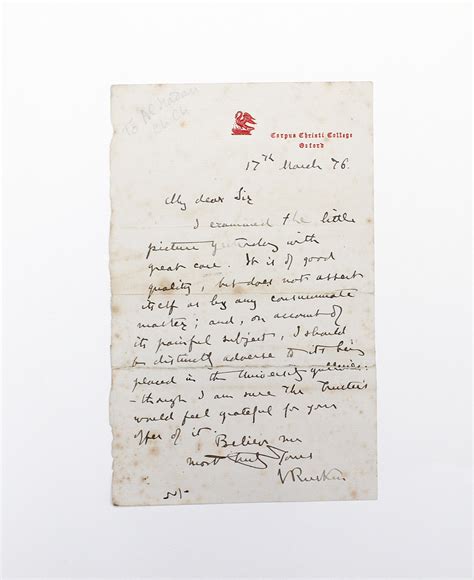 To A C Madan
Ch. Ch
Corpus Christi College
Oxford
17th March 76.
My dear Sir
I examined the little
picture yesterday with
great care. It is of good
quality, but does not assert
itself as by any consummate
master; and, on account of
its painful subject, I should
be distinctly adverse to its being
placed in the University galleries.
– though I am sure the Trustees
would feel grateful for your
offer of it. Believe me
most truly yours
J Ruskin